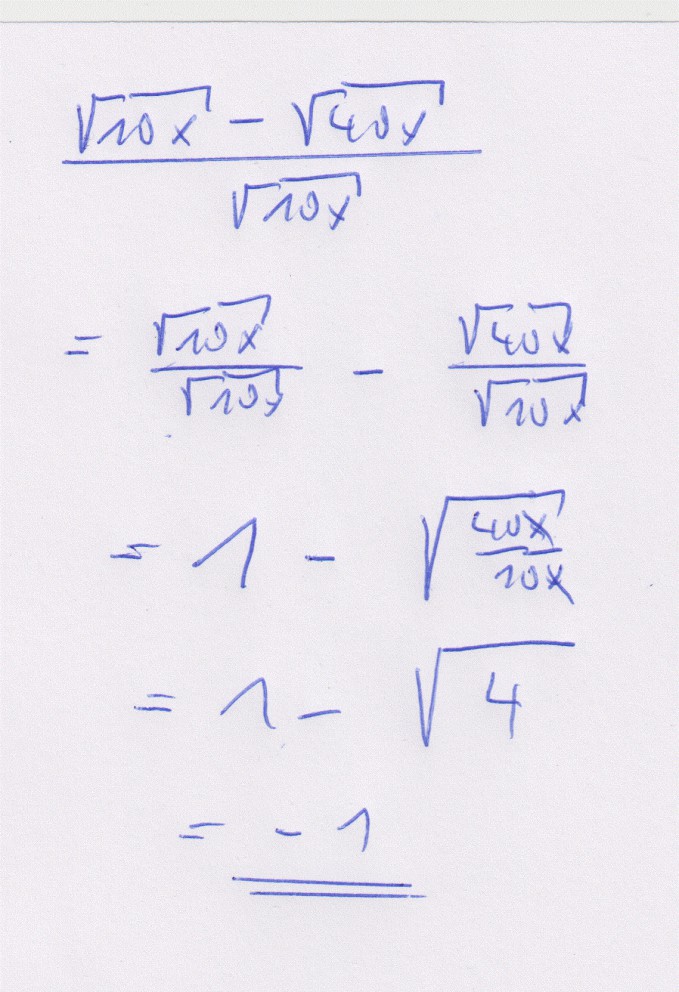 (√(10x) − √(40x)) / √(10x)
= √(10x) / √(10x) − √(40x) / √(10x)
= 1 − √(40x / 10x)
= 1 − √4
= −1